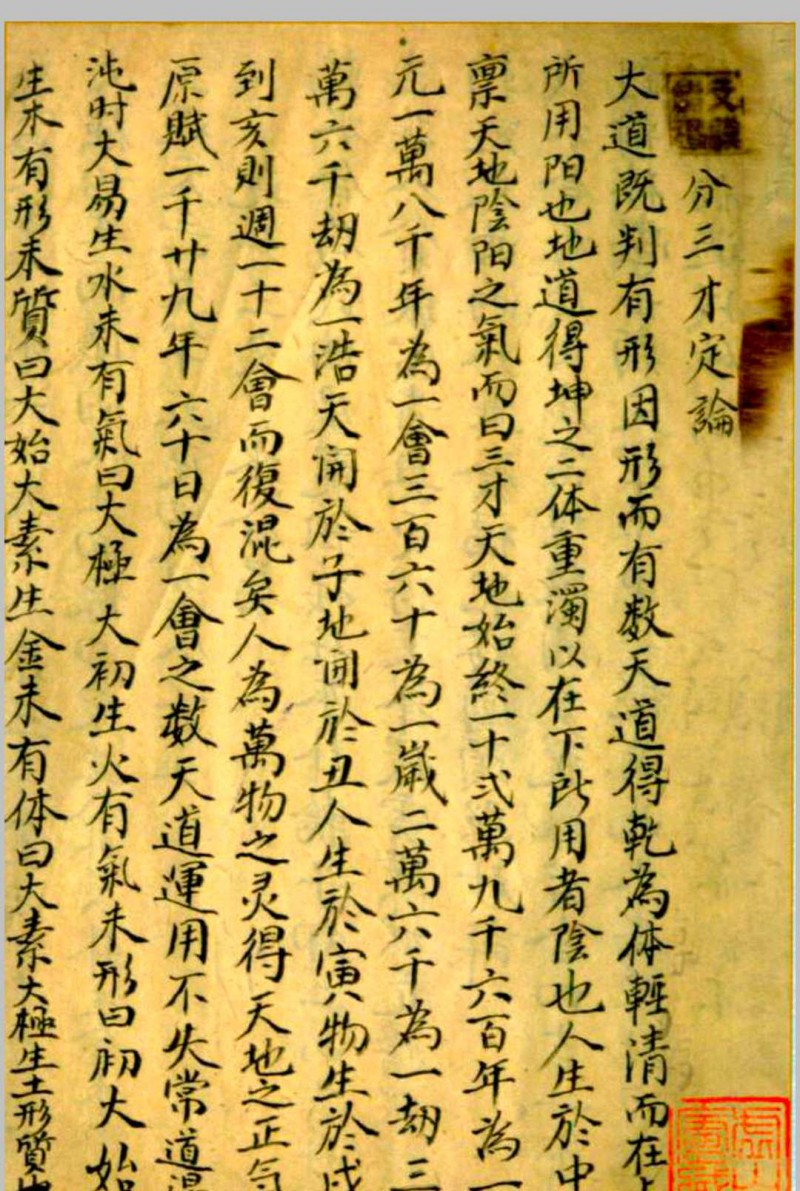 分三才定論
大道既判有形因形而有数天道得乾為体輕清而在
所用阳也地道得坤之二体重濁以在下所用者陰也人生於中
禀天地陰阳之氣而曰三才天地始終一十弍萬九千六百年為一
元一萬八千年為一會三百六十為一歲二萬六千為一劫三
萬六千劫為一浩天開於子地開於丑人生於寅物生於戍
到亥則週一十二會而復混矣人為萬物之灵得天地之正
原賦一千廿九年六十日為一會之数天道運用不失常道混
沌时大易生水未有氣曰大極大初生火有氣未形曰初大始
生木有形未質曰大始大素生金未有体曰大素大極生土形質